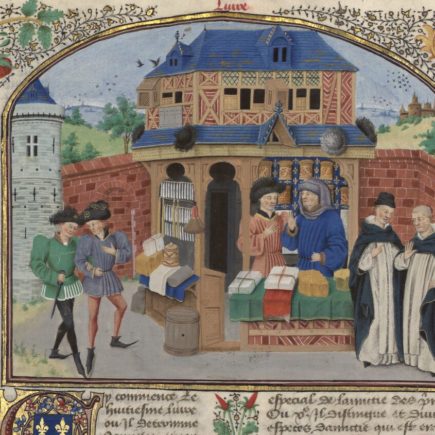 Liure
y commence Le
huitiesme liure
ou Il determine
especial de lamitie des
Ou Il distingue et diui
especes damitie qui est